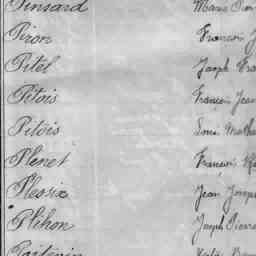 Pinsard Marie
Piron François J
Pitel Joseph Fra
Pitois François Jean
Pitois Louis Matha
Plenet François
Plessix Jean Joseph
Plihon Joseph Pierre